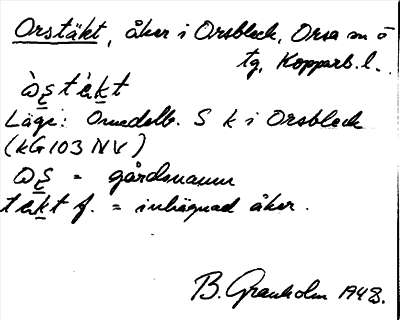 Orstäkt, åker i Orsbleck, Orsa sn o
tg, Kopparb. l.
Läge: Omedelb. S k i Orsbleck
(kG 103 NV)
= gårdsnamn
täkt f. = inhägnad åker.
B. Granholm 1948.